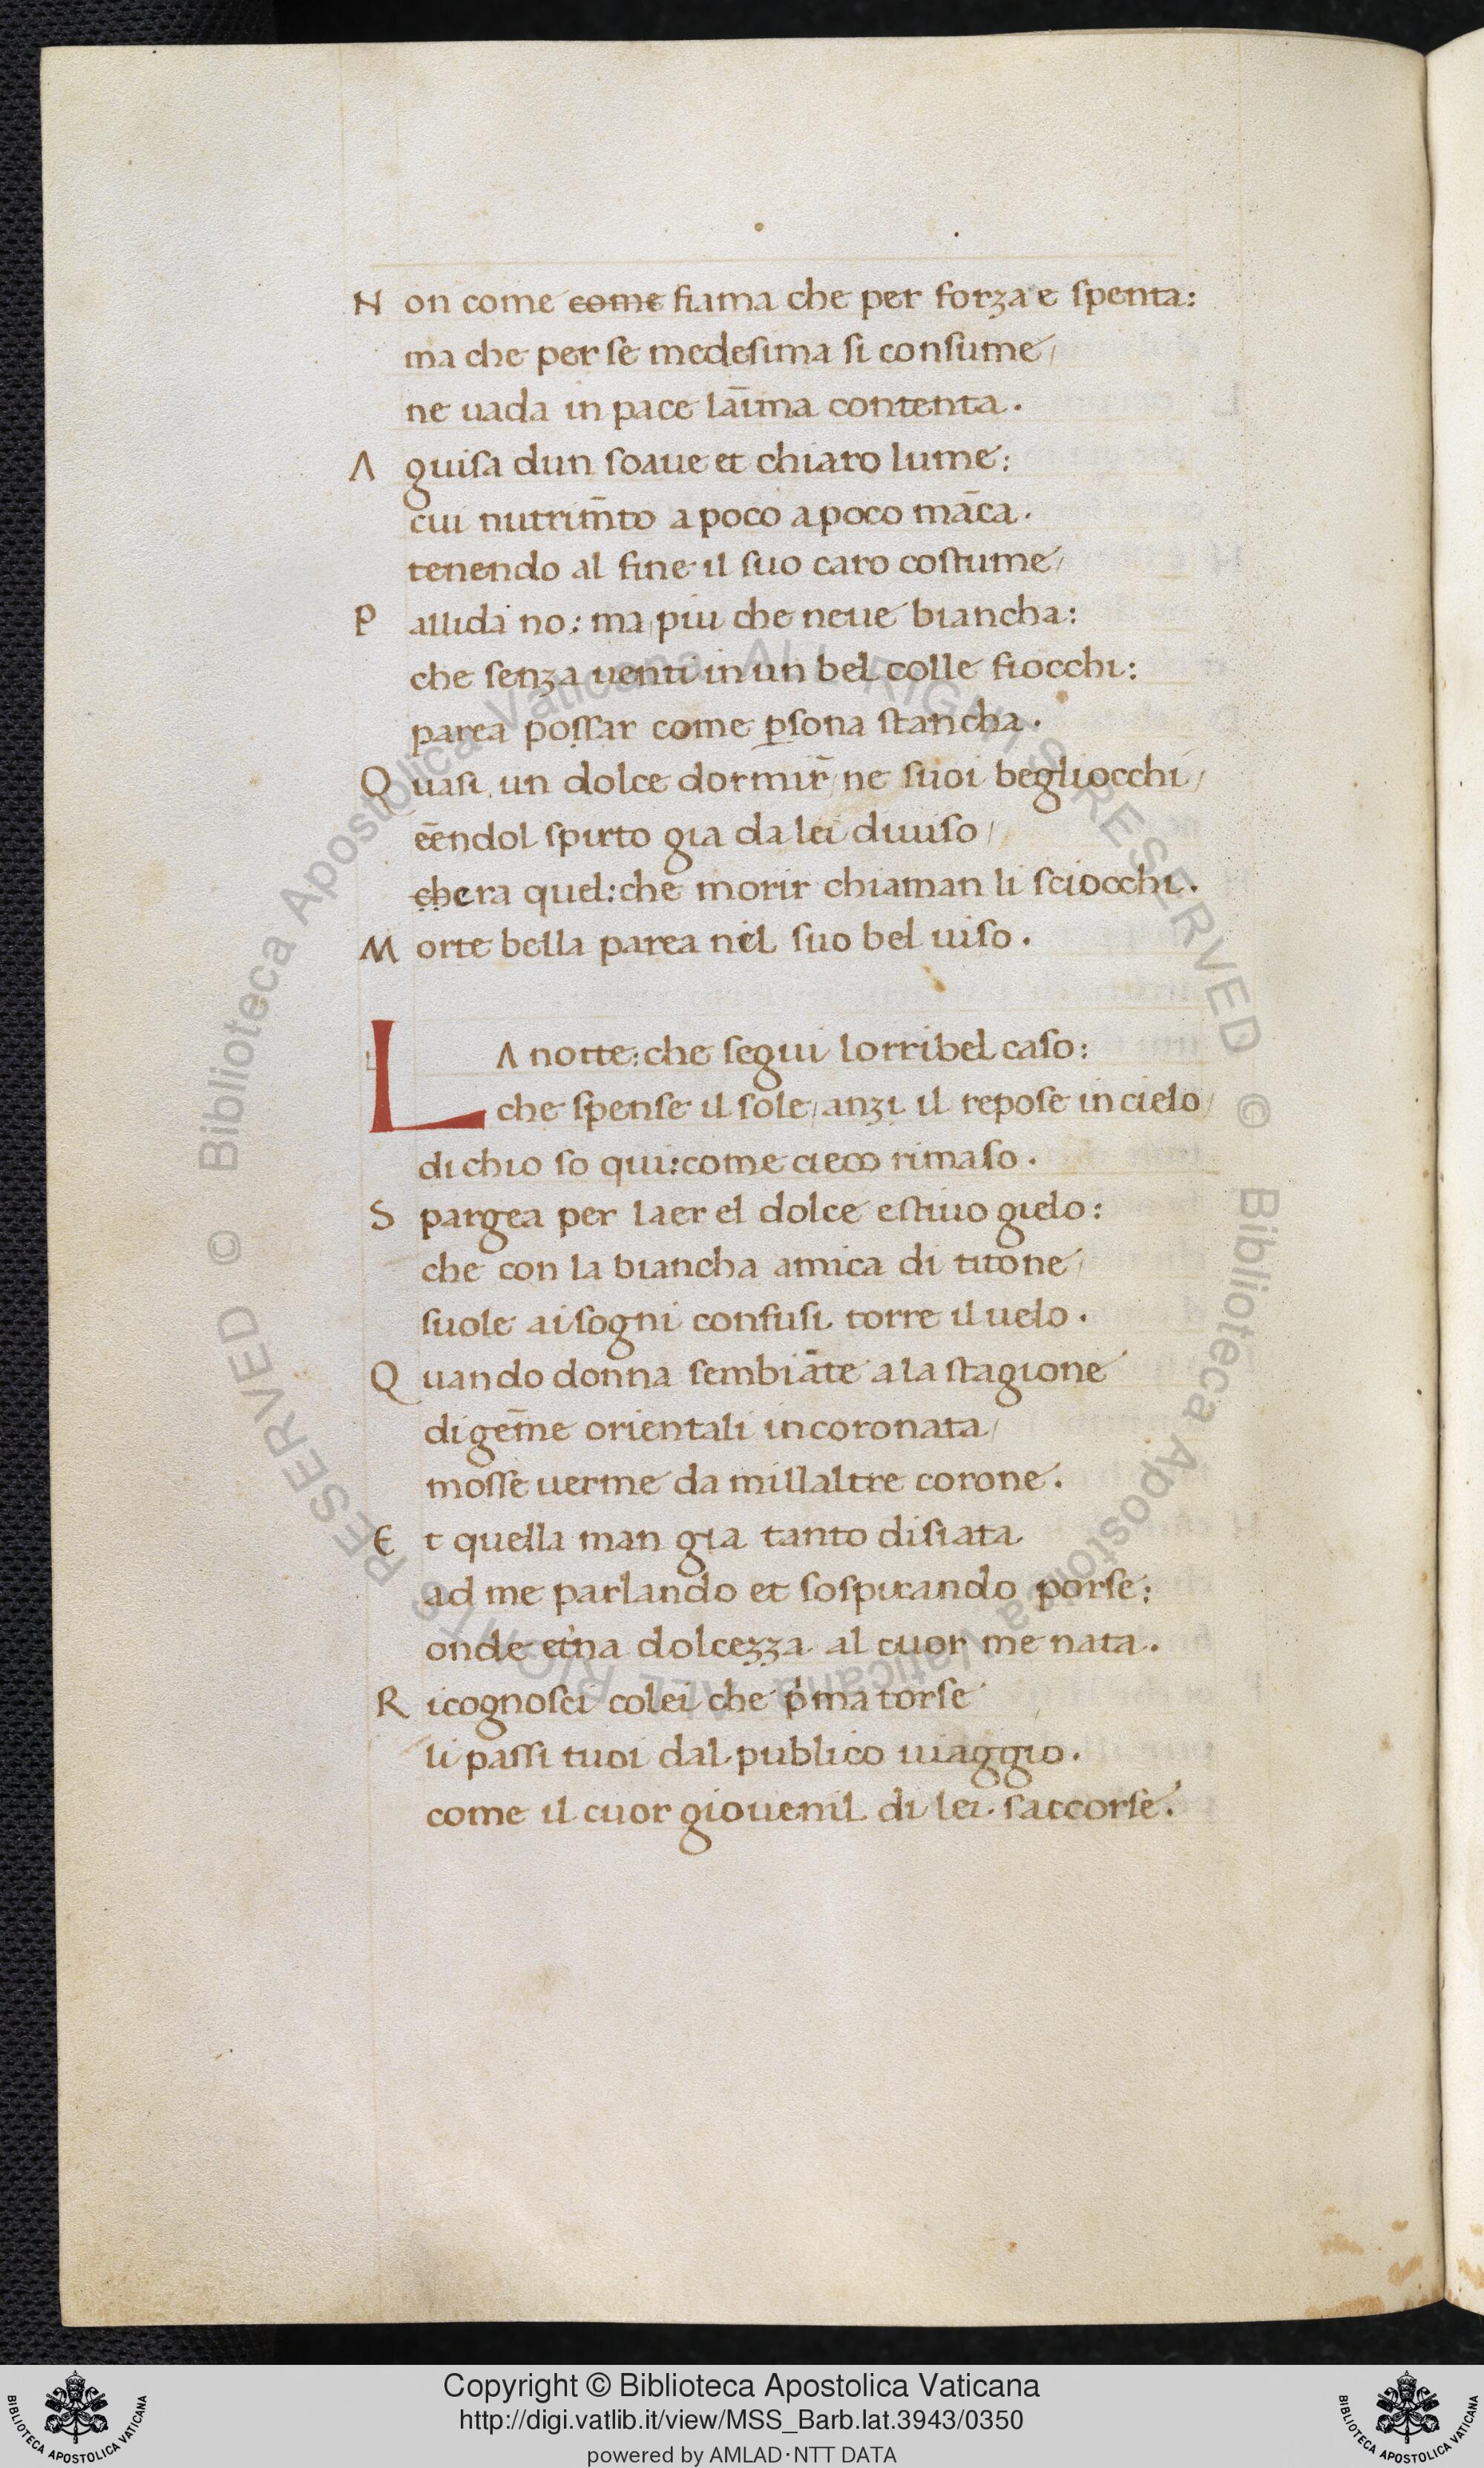 N on come come fiama che per forza e spenta:
ma che per se medesima si consume/
ne uada in pace laīma contenta.
A guisa dun soaue et chiaro lume:
cui nutrim̄to a poco a poco māca.
tenendo al fine il suo caro costume/
P allida no: ma piu che neue biancha:
che senza uenti in un bel colle fiocchi:
parea possar come ꝑsona stancha.
Q uasi un dolce dormir̄ ne suoi begliocchi/
eēndol spirto gia da lei diuiso/
chera quel: che morir chiaman li sciocchi.
M orte bella parea nel suo bel uiso.
LA notte: che segui lorribel caso:
che spense il sole/ anzi il repose in cielo/
di chio so qui: come cieco rimaso.
S pargea per laer el dolce estiuo gielo:
che con la biancha amica di titone/
suole ai sogni confusi torre il uelo.
Q uando donna sembiāte a la stagione
di gem̄e orientali incoronata/
mosse uerme da millaltre corone.
E t quella man gia tanto disiata
ad me parlando et sospirando porse:
onde et̓na dolcezza al cuor me nata.
R icognosci colei che p̓ma torse
li passi tuoi dal publico uiaggio.
come il cuor giouenil di lei saccorse.
Copyright © Biblioteca Apostolica Vaticana
http://digi.vatlib.it/view/MSS_Barb.lat.3943/0350
powered by AMLAD·NTT DATA
BIBLIOTECA APOSTOLICA VATICANA
BIBLIOTECA APOSTOLICA VATICANA
© Biblioteca Apostolica Vaticana ALL RIGHTS RESERVED © Biblioteca Apostolica Vaticana ALL RIGHTS RESERVED